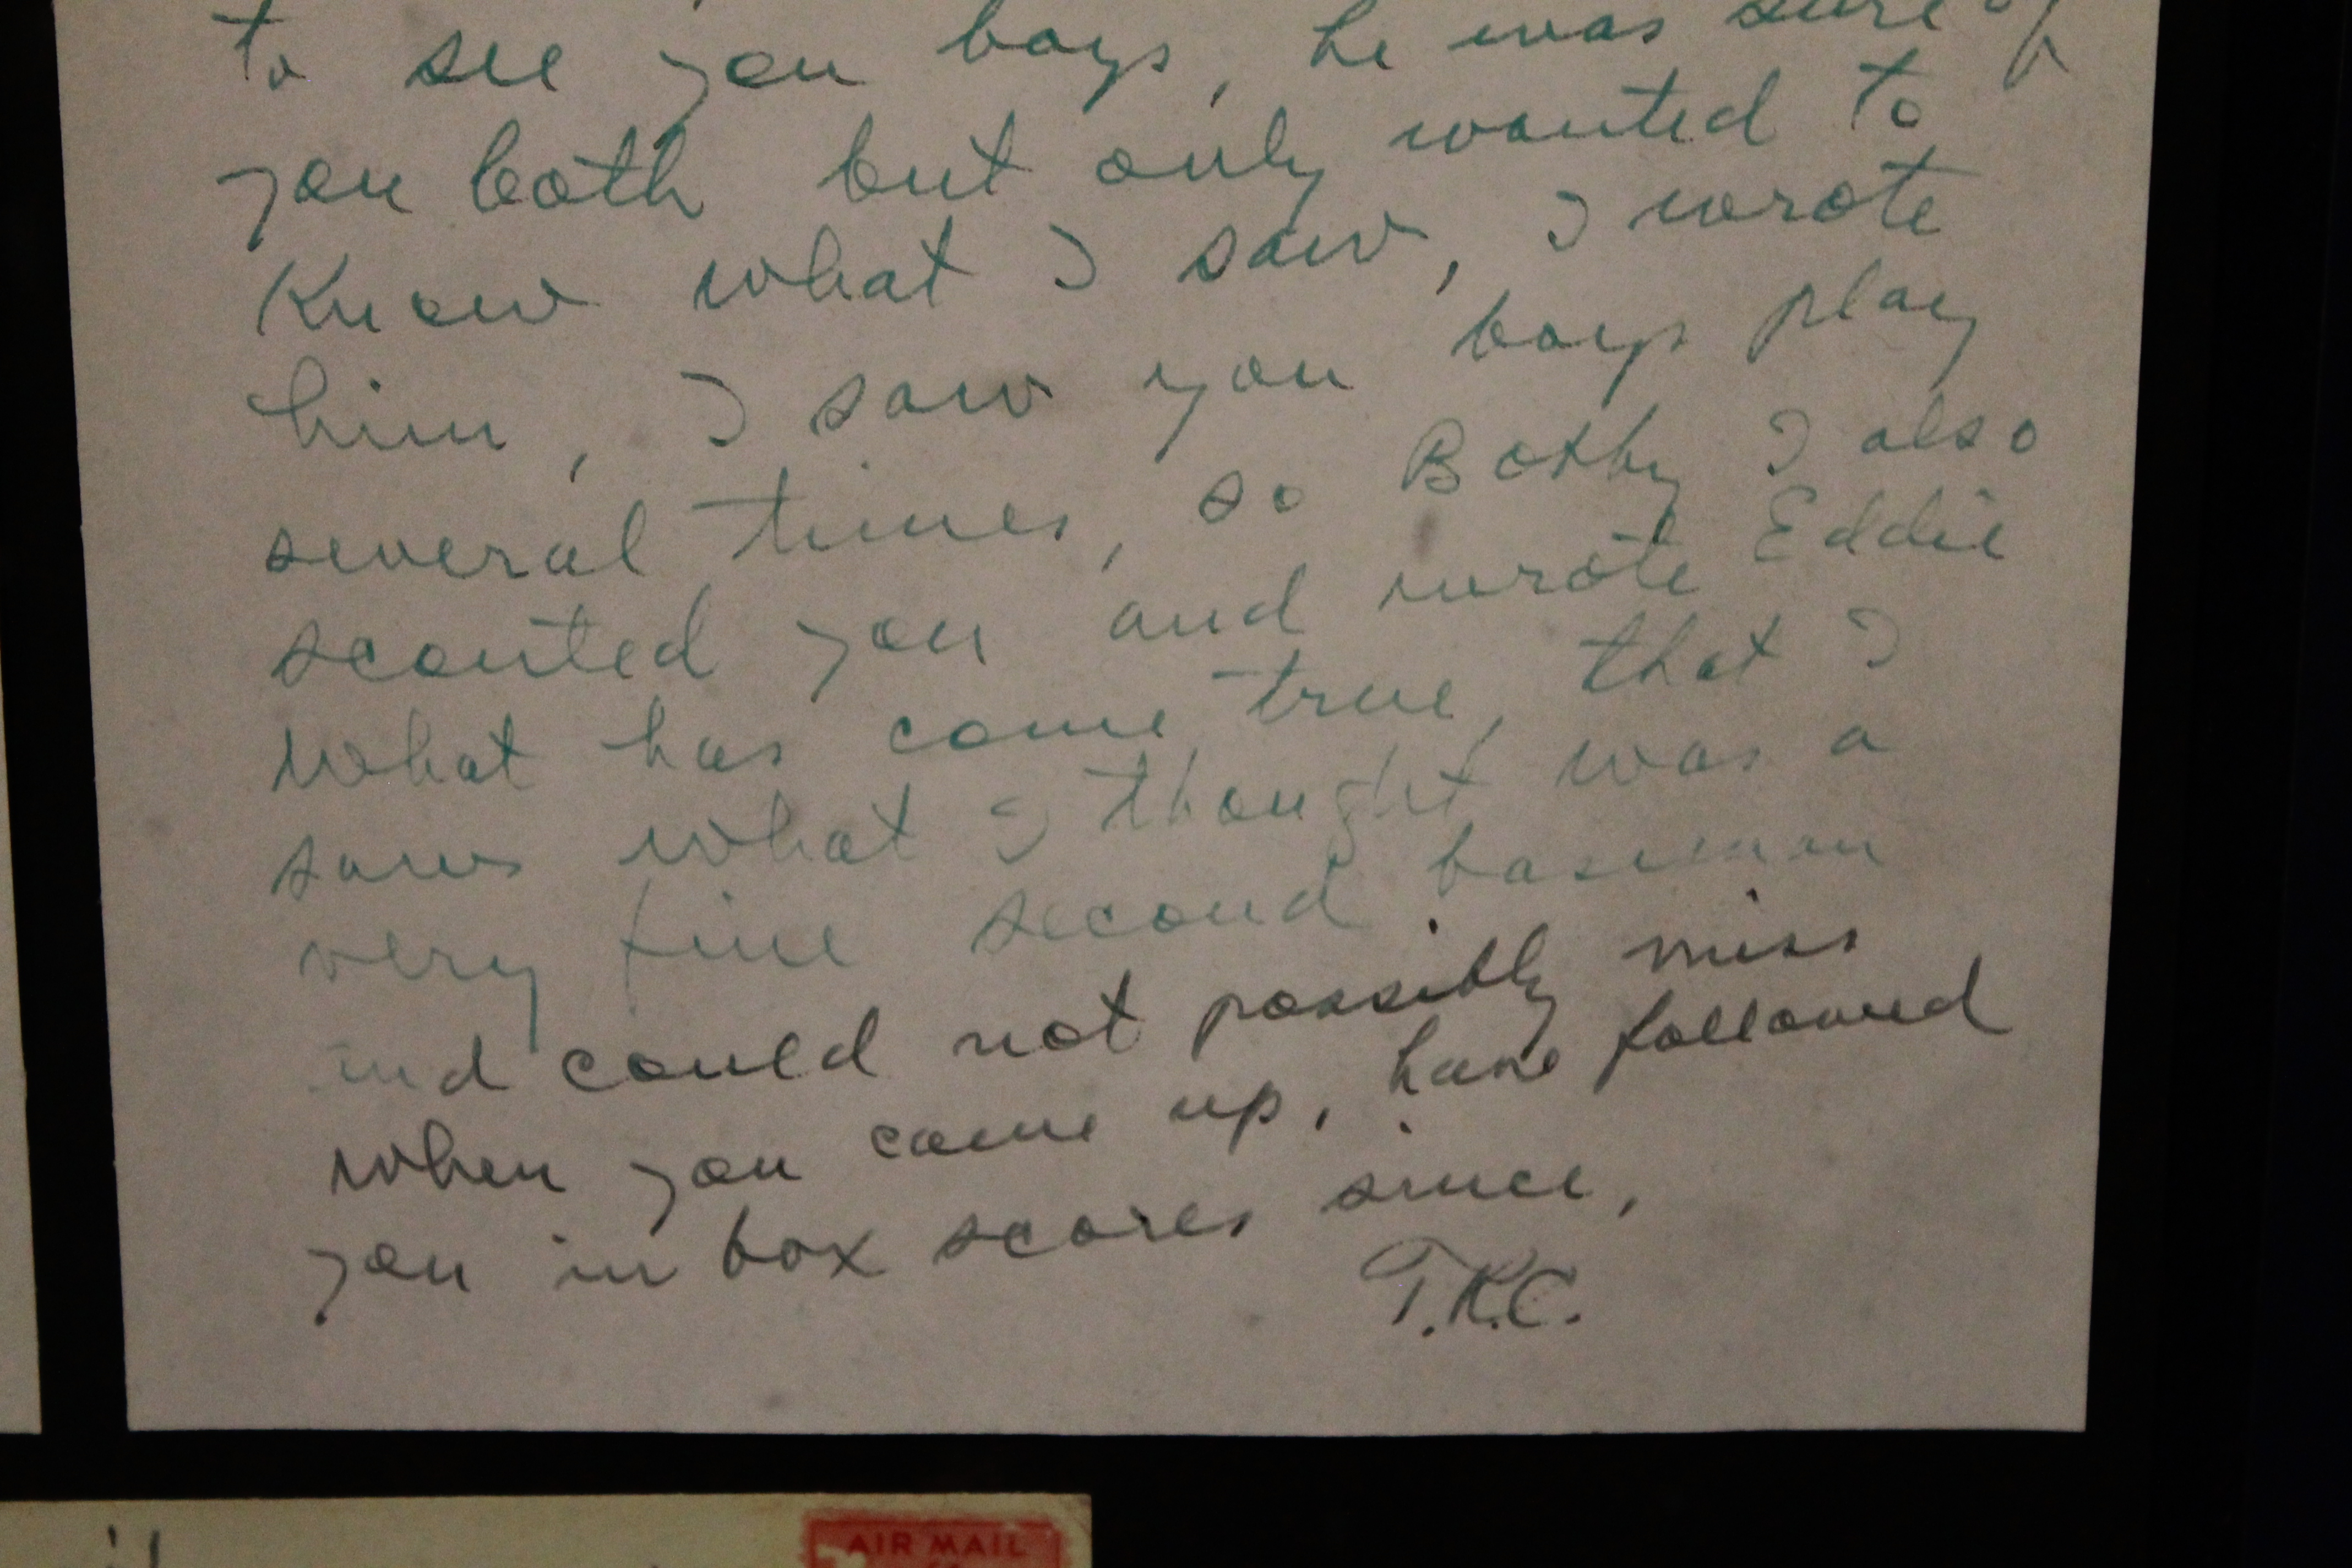 to see you boys, he was sure of
you both but only wanted to
know what I saw, I wrote
him, I saw you boys play
several times, so Bobby I also
scouted you and wrote Eddie
what has come true, that I
saw what I thought was a
very fine second baseman
and could not possibly miss
when you came up, have followed
you in box scores since,
T.K.C.
AIR MAIL